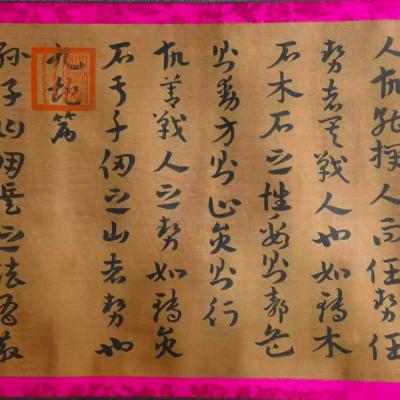 人故能擇人而任勢任
勢者其戰人也如轉木
石木石之性安則靜危
則動方則止圓則行
故善戰人之勢如轉圓
石于千仞之山者勢也
九地篇
孫子曰用兵之法有散